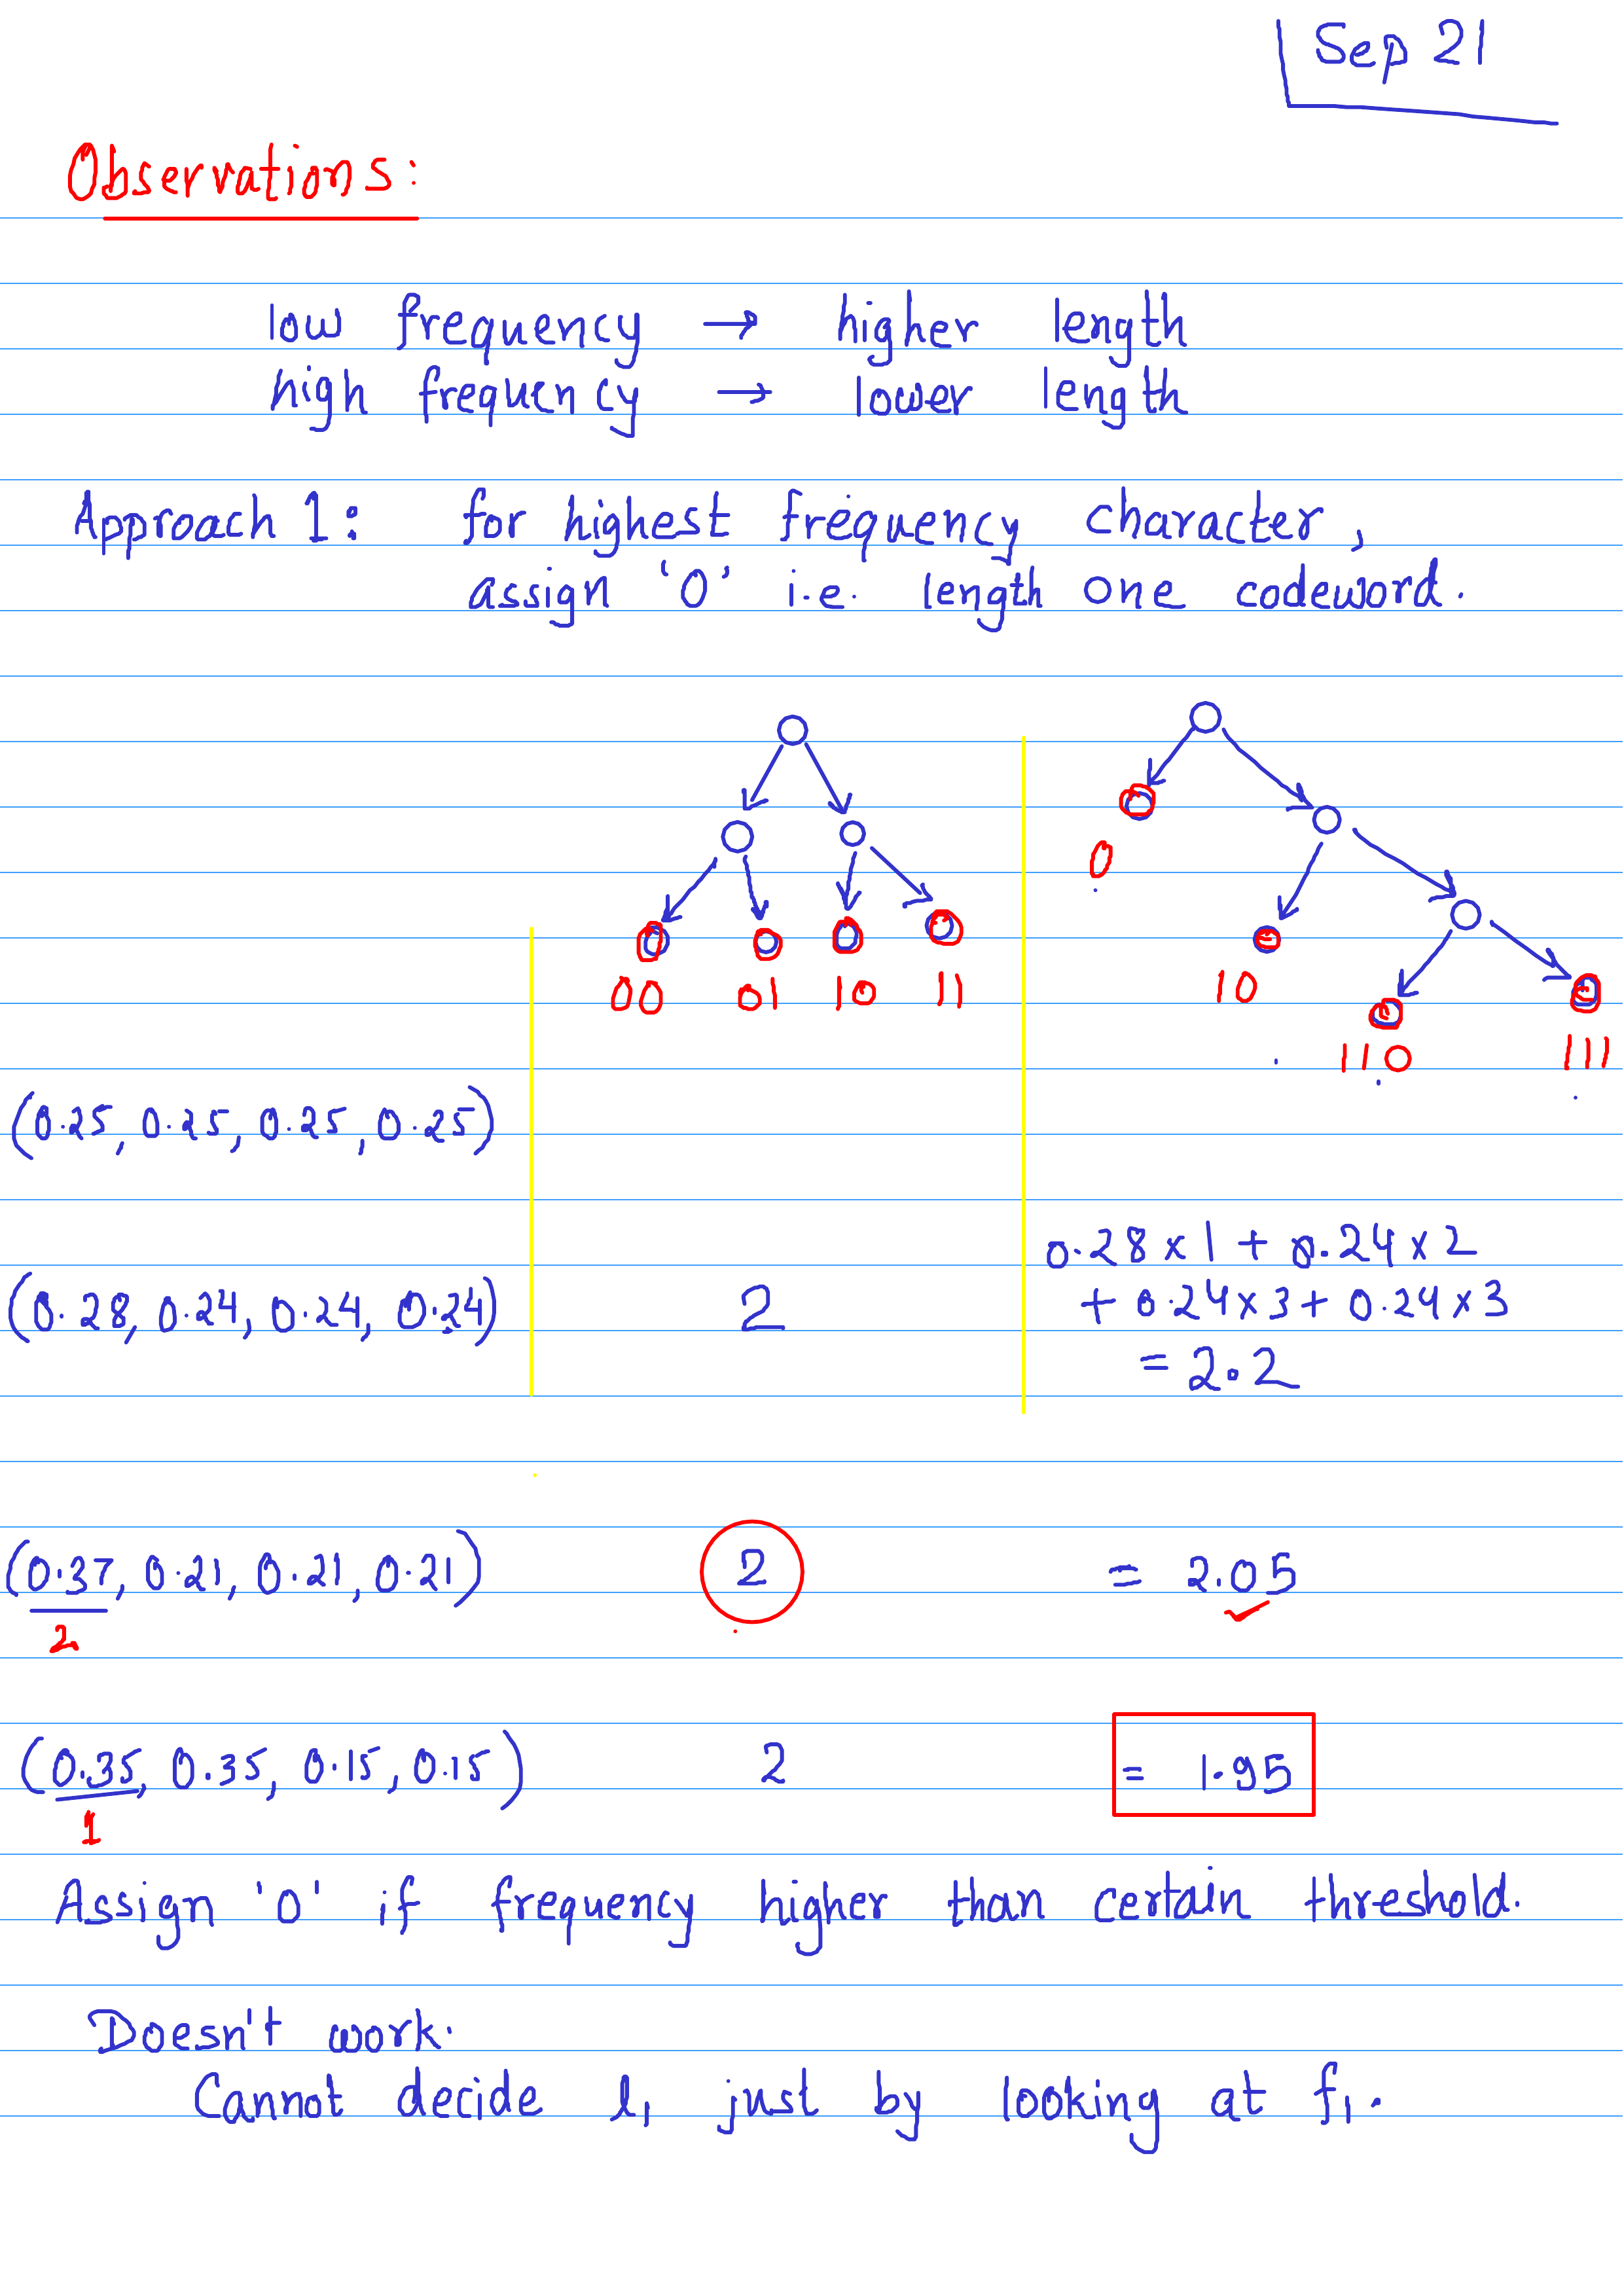 Sep 21
Observations:
low frequency → higher length
high frequency → lower length
Approach 1: for highest frequency character,
assign '0' i.e. length one codeword.
0
00 01 10 11
10
110 111
(0.25, 0.25, 0.25, 0.25)
(0.28, 0.24, 0.24, 0.24) 2
0.28 x 1 + 0.24 x 2
+ 0.24 x 3 + 0.24 x 3
= 2.2
(0.37, 0.21, 0.21, 0.21) 2 = 2.05
2
(0.35, 0.35, 0.15, 0.15) 2 = 1.95
1
Assign '0' if frequency higher than certain threshold.
Doesn't work.
Cannot decide l₁ just by looking at f₁.